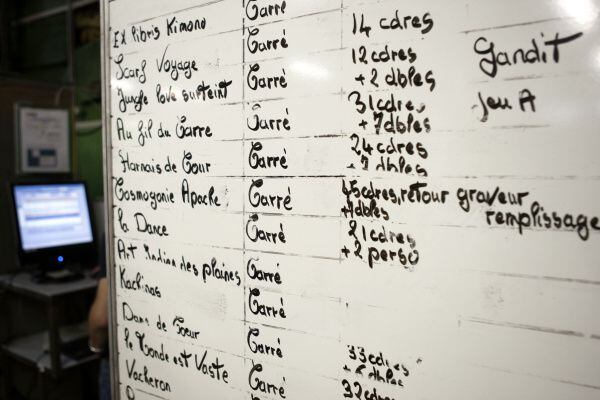 Carré
Ex libris Kimono Carré 14 cdres
Gandit
Scarf Voyage Carré 12 cdres
+ 2 dbles
Jungle love surteint Carré 31 cdres
+ 7 dbles
jeu A
Au fil du Carré Carré 24 cdres
+ 7 dbles
Harnais de Cour Carré 45 cdres, retour graveur
+ 4 dbles remplissage
Cosmogonie Apache Carré 21 cdres
+ 2 perso
la Dance Carré
Art Indien des plaines Carré
Kachinas Carré
Dans de Coeur Carré 33 cdres
+ 6 dbles
le Monde est Vaste Carré 32 cdres
Vacheron